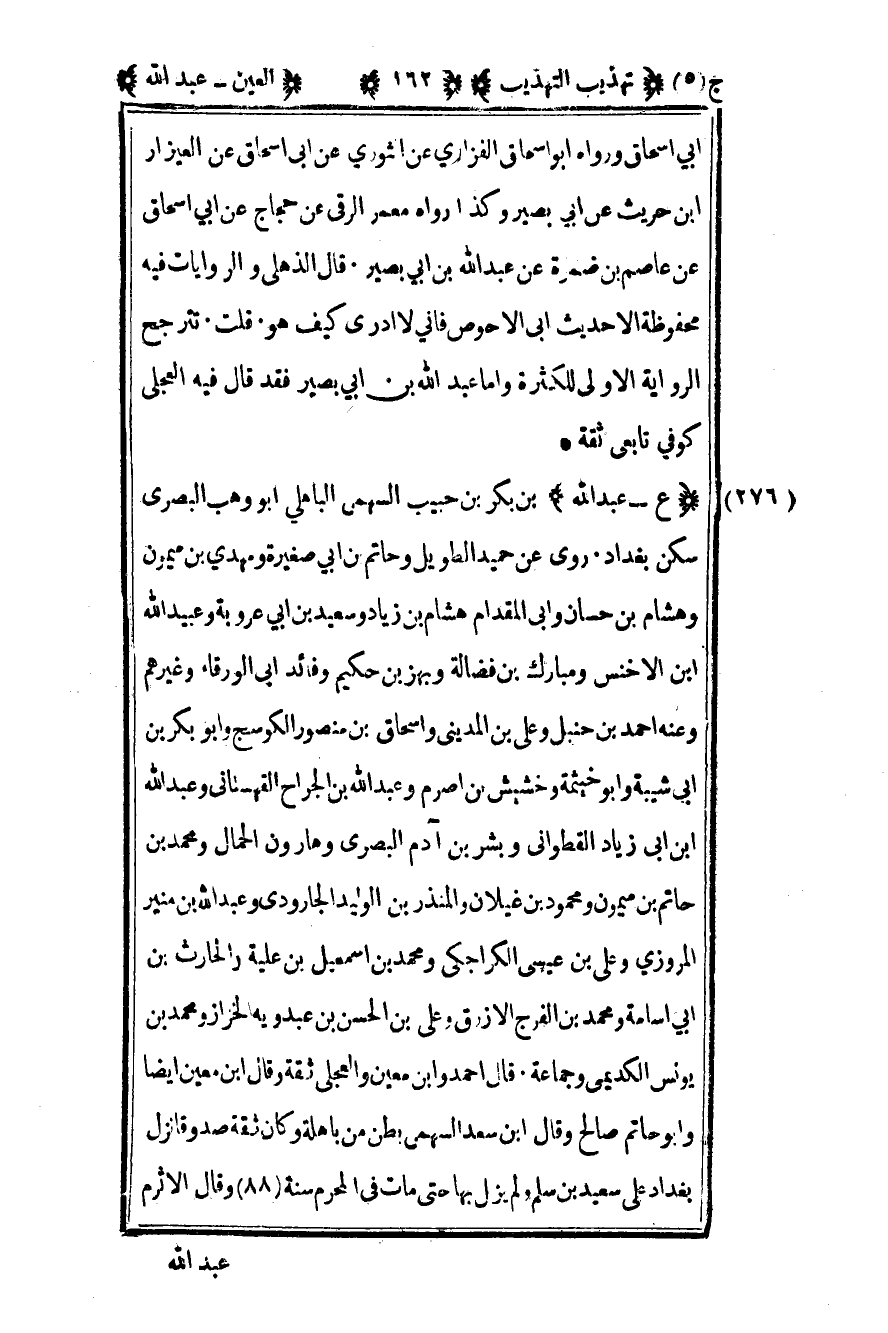 ج(٥) ﴿ تهذيب التهذيب ﴾ ﴿ ١٦٢ ﴾ ﴿ العين ـ عبد الله ﴾
ابي اسحاق ورواه ابو اسحاق الفزاري عن الثوري عن ابى اسحاق عن العيزار
ابن حريث عن ابي بصير وكذا رواه معمر الرقى عن حجاج عن ابي اسحاق
عن عاصم بن ضمرة عن عبدالله بن ابي بصير ٠ قال الذهلى و الروايات فيه
محفوظة الا حديث ابى الاحوص فاني لا ادرى كيف هو ٠ قلت ٠ تترجح
الرواية الاولى للكثرة واما عبد الله بن ٠ ابي بصير فقد قال فيه العجلى
كوفي تابعى ثقة ●
(٢٧٦) ﴿ ع ـ عبدالله ﴾ بن بكر بن حبيب السهمى الباهلي ابو وهب البصرى
سكن بغداد ٠ روى عن حميد الطويل وحاتم بن ابي صغيرة ومهدي بن ميمون
وهشام بن حسان وابى المقدام هشام بن زياد وسعيد بن ابي عروبة وعبيد الله
ابن الاخنس ومبارك بن فضالة وبهز بن حكيم وفائد ابى الورقاء وغيرهم
وعنه احمد بن حنبل وعلى بن المدينى واسحاق بن منصور الكوسج وابو بكر بن
ابي شيبة وابو خيثمة وخشيش بن اصرم وعبدالله بن الجراح القهستانى وعبدالله
ابن ابى زياد القطوانى وبشر بن آدم البصرى وهارون الحمال ومحمد بن
حاتم بن ميمون ومحمود بن غيلان والمنذر بن الوليد الجارودى وعبدالله بن منير
المروزي وعلى بن عيسى الكراجكى ومحمد بن اسمعيل بن علية والحارث بن
ابي اسامة ومحمد بن الفرج الازرق وعلى بن الحسن بن عبدويه الخزاز ومحمد بن
يونس الكديمى وجماعة ٠ قال احمد وابن معين والعجلى ثقة وقال ابن معين ايضا
وابو حاتم صالح وقال ابن سعد السهمى بطن من باهلة وكان ثقة صدوقا نزل
بغداد على سعيد بن سلم ولم يزل بها حتى مات فى المحرم سنة (٨٨) وقال الاثرم
عبد الله